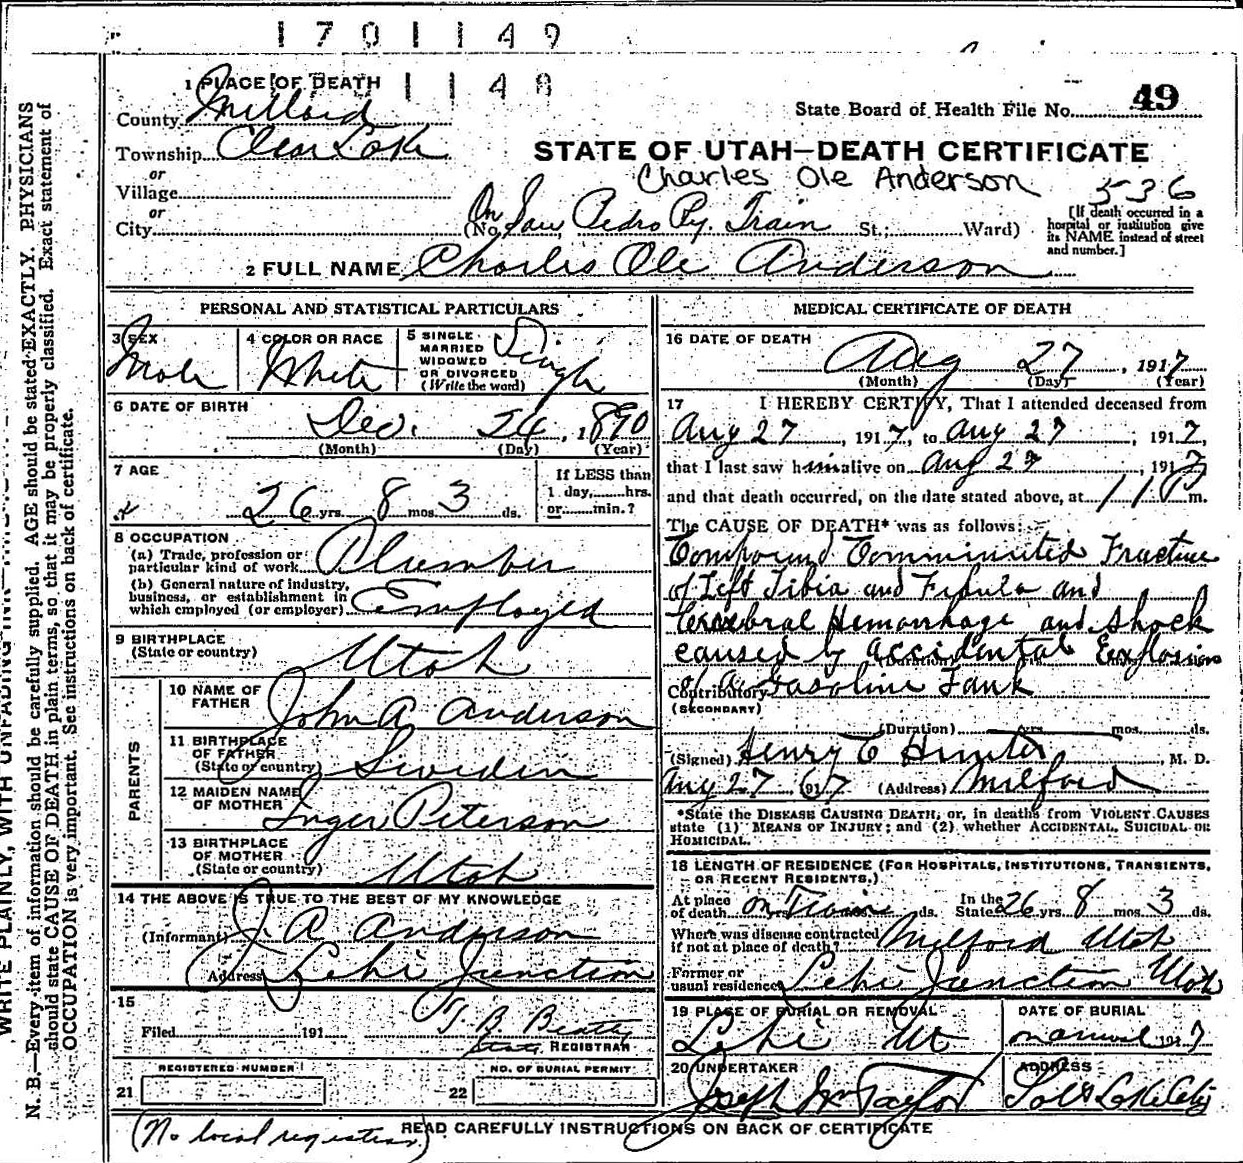 1701149
1 PLACE OF DEATH 1148
County Millard
State Board of Health File No. 49
Township Clear Lake
STATE OF UTAH—DEATH CERTIFICATE
or
Village
Charles Ole Anderson 536
or
City (No. On San Pedro Ry. Train St.; Ward)
[If death occurred in a hospital or institution give its NAME instead of street and number.]
2 FULL NAME Charles Ole Anderson
PERSONAL AND STATISTICAL PARTICULARS
3 SEX Male
4 COLOR OR RACE White
5 SINGLE MARRIED WIDOWED OR DIVORCED (Write the word) Single
6 DATE OF BIRTH
Dec. 24, 1890
(Month) (Day) (Year)
7 AGE
26 yrs. 8 mos. 3 ds.
If LESS than
1 day, hrs.
or min.?
8 OCCUPATION
(a) Trade, profession or
particular kind of work Plumber
(b) General nature of industry,
business, or establishment in
which employed (or employer) Employed
9 BIRTHPLACE
(State or country) Utah
PARENTS
10 NAME OF
FATHER John A Anderson
11 BIRTHPLACE
OF FATHER
(State or country) Sweden
12 MAIDEN NAME
OF MOTHER Inger Peterson
13 BIRTHPLACE
OF MOTHER
(State or country) Utah
14 THE ABOVE IS TRUE TO THE BEST OF MY KNOWLEDGE
(Informant) J. A. Anderson
Address Lehi Junction
15
Filed 191 T. B. Beatty
State REGISTRAR
REGISTERED NUMBER NO. OF BURIAL PERMIT
21 22
MEDICAL CERTIFICATE OF DEATH
16 DATE OF DEATH
Aug 27, 1917
(Month) (Day) (Year)
17 I HEREBY CERTIFY, That I attended deceased from
Aug 27, 1917, to Aug 27, 1917,
that I last saw him alive on Aug 27, 1917
and that death occurred, on the date stated above, at m.
The CAUSE OF DEATH* was as follows:
Compound Comminuted Fracture
of Left Tibia and Fibula and
Cerebral Hemorrhage and Shock
caused by accidental Explosion
(Duration)
of a Gasoline Tank
Contributory
(SECONDARY)
(Duration) yrs. mos. ds.
(Signed) Henry C Hunter, M. D.
Aug 27 1917 (Address) Milford
*State the DISEASE CAUSING DEATH, or, in deaths from VIOLENT CAUSES
state (1) MEANS OF INJURY; and (2) whether ACCIDENTAL, SUICIDAL OR
HOMICIDAL.
18 LENGTH OF RESIDENCE (FOR HOSPITALS, INSTITUTIONS, TRANSIENTS,
OR RECENT RESIDENTS,)
At place of death on Train ds. In the State 26 yrs. 8 mos. 3 ds.
Where was disease contracted
if not at place of death? Milford Utah
Former or
usual residence Lehi Junction Utah
19 PLACE OF BURIAL OR REMOVAL
Lehi Ut
DATE OF BURIAL
1917
20 UNDERTAKER
Joseph Wm Taylor
ADDRESS
Salt Lake City
READ CAREFULLY INSTRUCTIONS ON BACK OF CERTIFICATE
(No local registrar)
WRITE PLAINLY, WITH UNFADING INK
N. B.—Every item of information should be carefully supplied. AGE should be stated EXACTLY. PHYSICIANS
should state CAUSE OF DEATH in plain terms, so that it may be properly classified. Exact statement of
OCCUPATION is very important. See instructions on back of certificate.